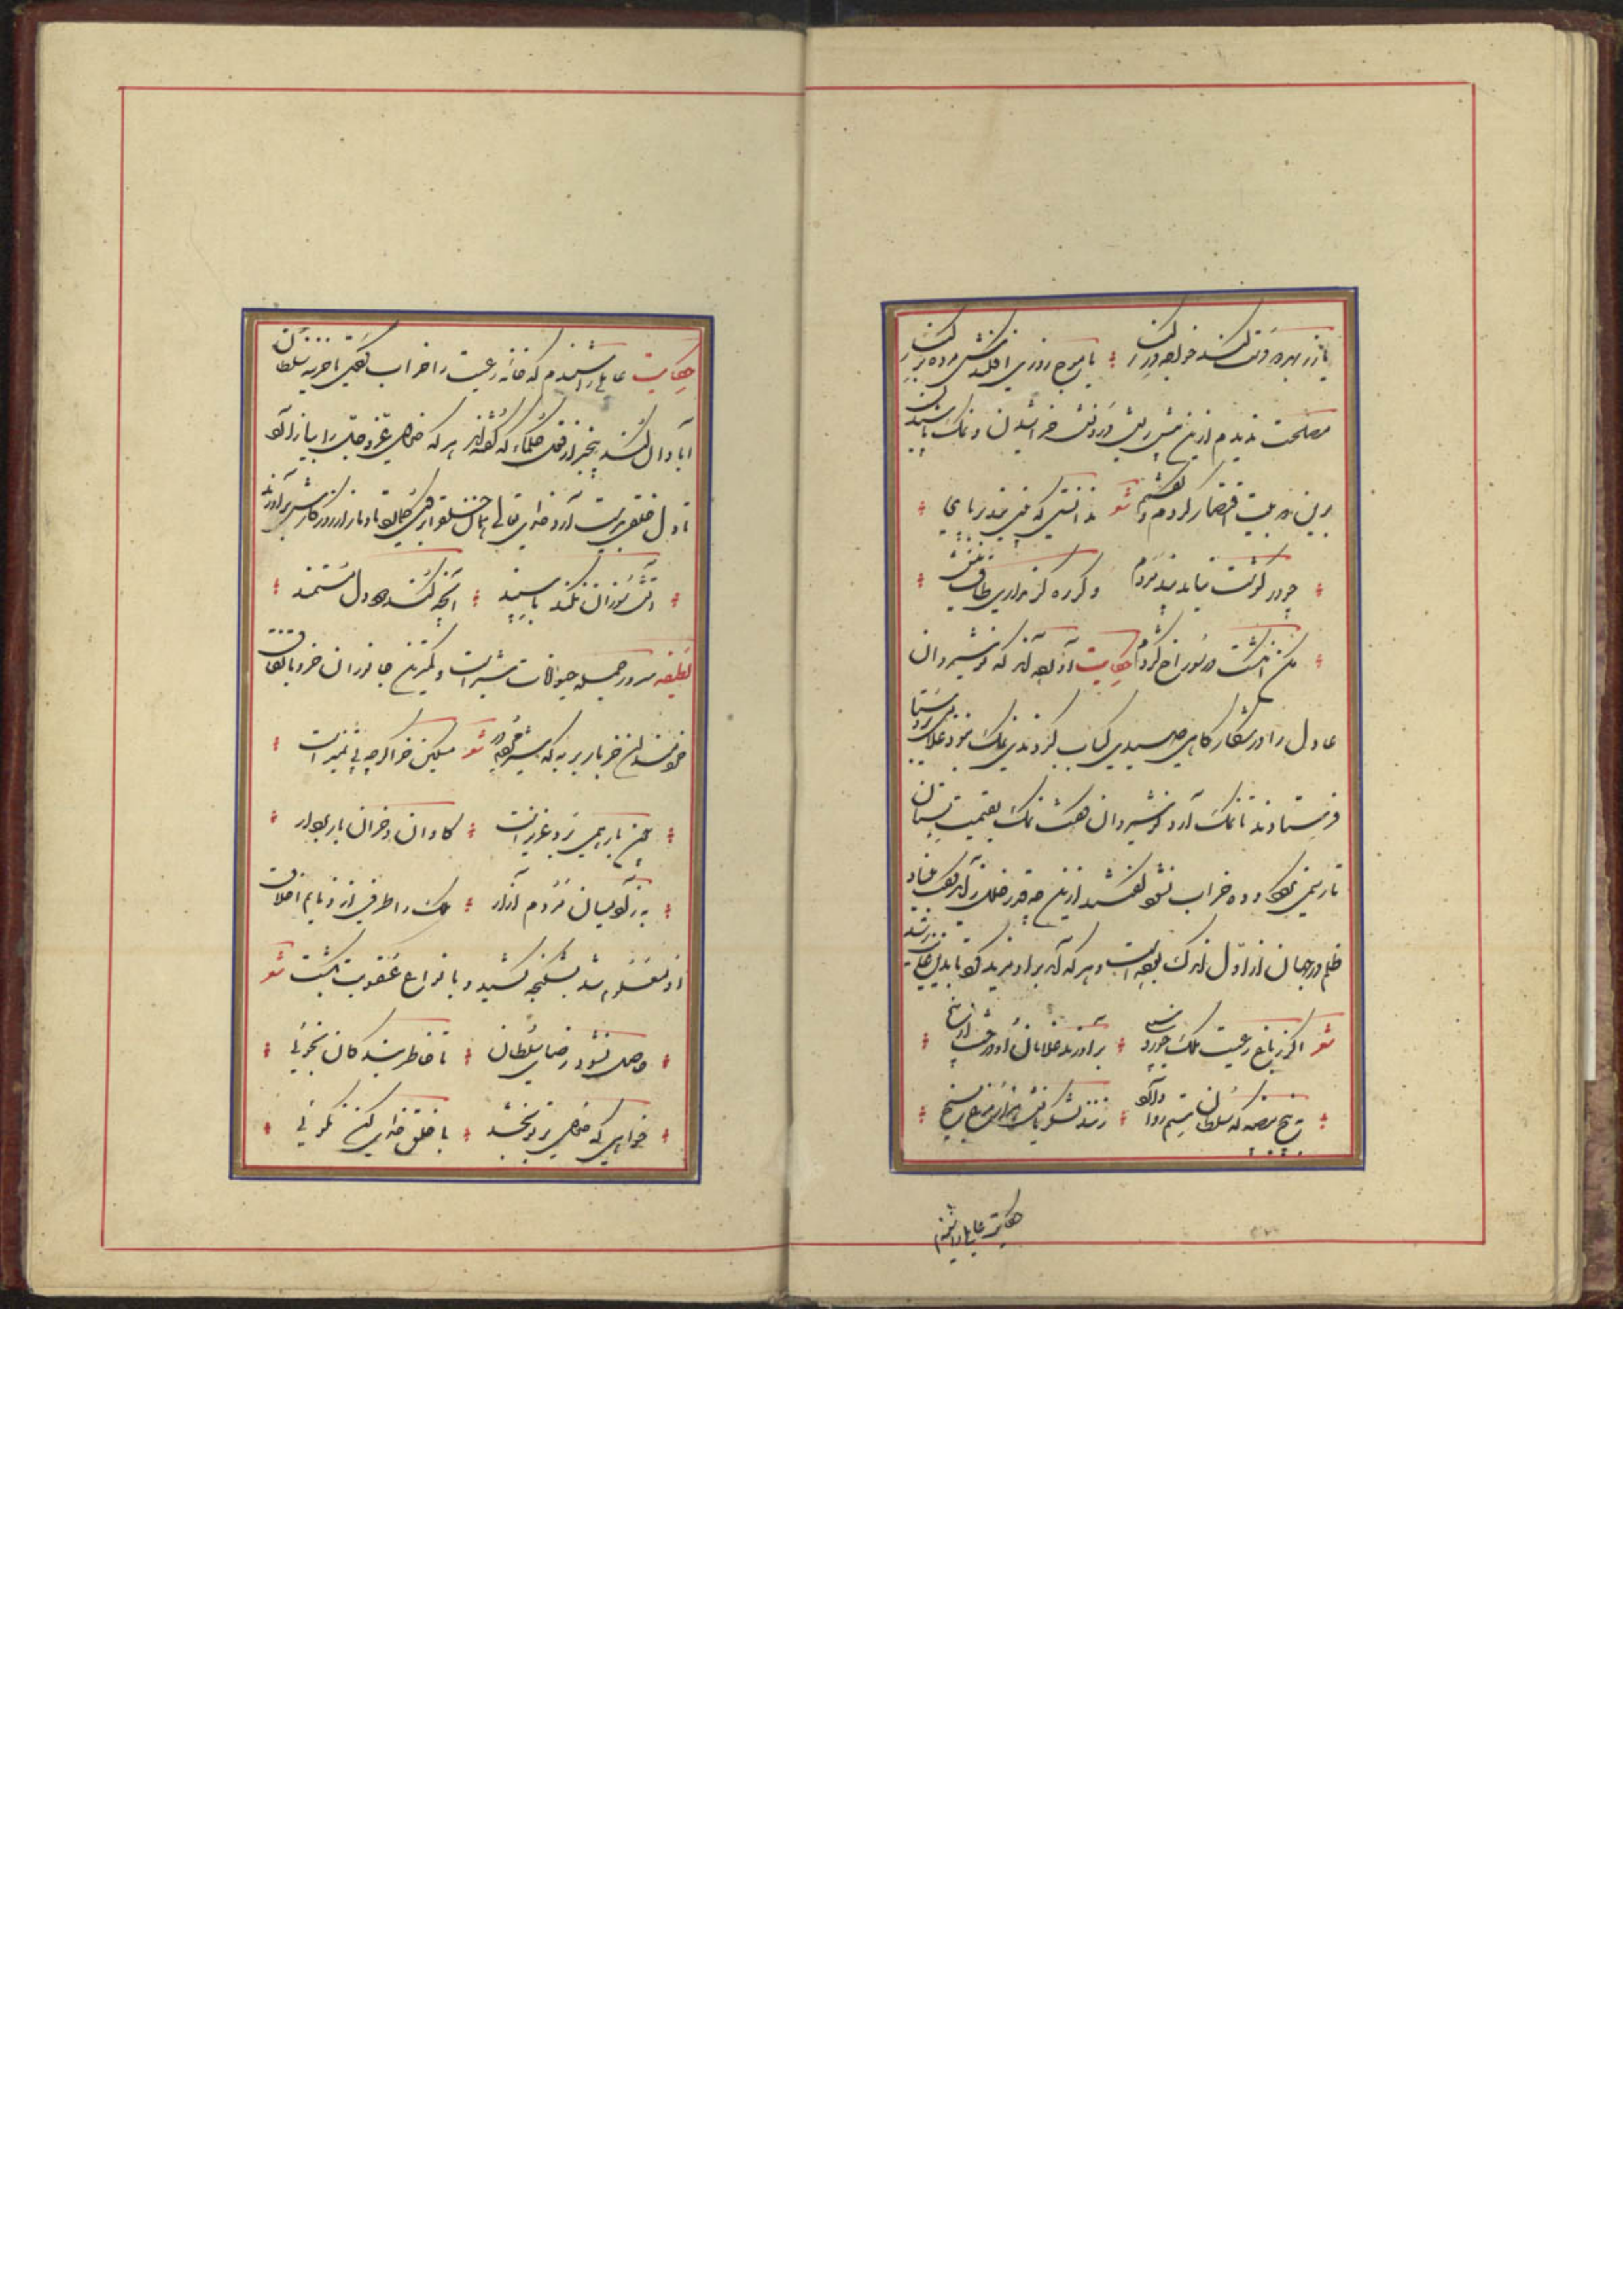 یا زر بهر دو دست کند خواجه در کنار یا موج روزی افکندش مرده بر کنار
مصلحت ندیدم ازین بیش ریش درونش خراشیدن و نمک پاشیدن
برین دو بیت اقتصار کردم و گفتم شعر ندانستی که بینی بند بر پای
چو در گوشت نیاید پند مردم دگر ره گر نداری طاقت نیش
مکن انگشت در سوراخ کژدم حکایت آورده اند که نوشیروان
عادل را در شکارگاهی صیدی کباب کردندی نمک نبود غلامی بروستا
فرستادند تا نمک آرد نوشیروان گفت نمک بقیمت بستان
تا رسمی نگردد و ده خراب نشود گفتند ازین چه قدر خلل زاید گفت بنیاد
ظلم در جهان از اول اندک بوده است و هر که آمد برو مزید کرد تا بدین غایت رسید
شعر اگر ز باغ رعیت ملک خورد سیبی بر آورند غلامان او درخت از بیخ
به پنج بیضه که سلطان ستم روا دارد زنند لشکریانش هزار مرغ بسیخ
حکایت عاملی را شنیدم
حکایت عاملی را شنیدم که خانه رعیت را خراب کردی تا خزینه سلطان
آبادان کند بیخبر از قول حکما که گفته اند هر که خدای عز و جل را بیازارد
تا دل خلقی بدست آرد خدای تعالی همان خلق را برو گمارد تا دمار از روزگارش برآرد
آتش سوزان نکند با سپند آنچه کند دود دل مستمند
لطیفه سرور جمله حیوانات شیر است و کمترین جانوران خر و باتفاق
خردمندان خر باربر به که شیر مردم در شعر مسکین خر اگرچه بی تمیز است
چون بار همی برد عزیز است گاوان و خران باربردار
به ز آدمیان مردم آزار ملک را طرفی از ذمایم اخلاق
او معلوم شد بشکنجه کشید و بانواع عقوبت بکشت شعر
حاصل نشود رضای سلطان تا خاطر بندگان نجوئی
خواهی که خدای بر تو بخشد با خلق خدای کن نکوئی